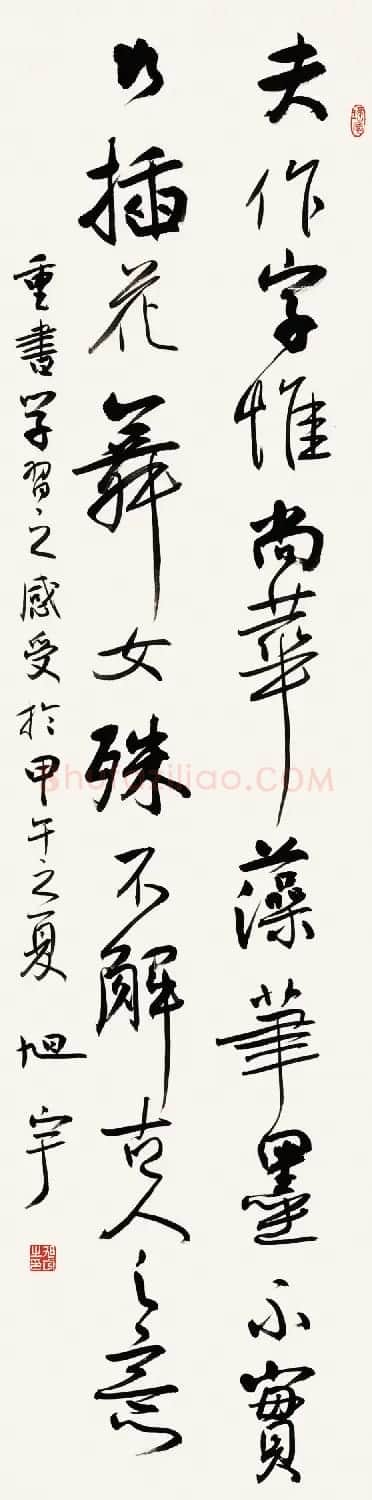 夫作字惟尚華藻筆墨不實
如插花舞女殊不解古人之意
重書学習之感受於甲午之夏 旭宇
Shufaziliao.COM